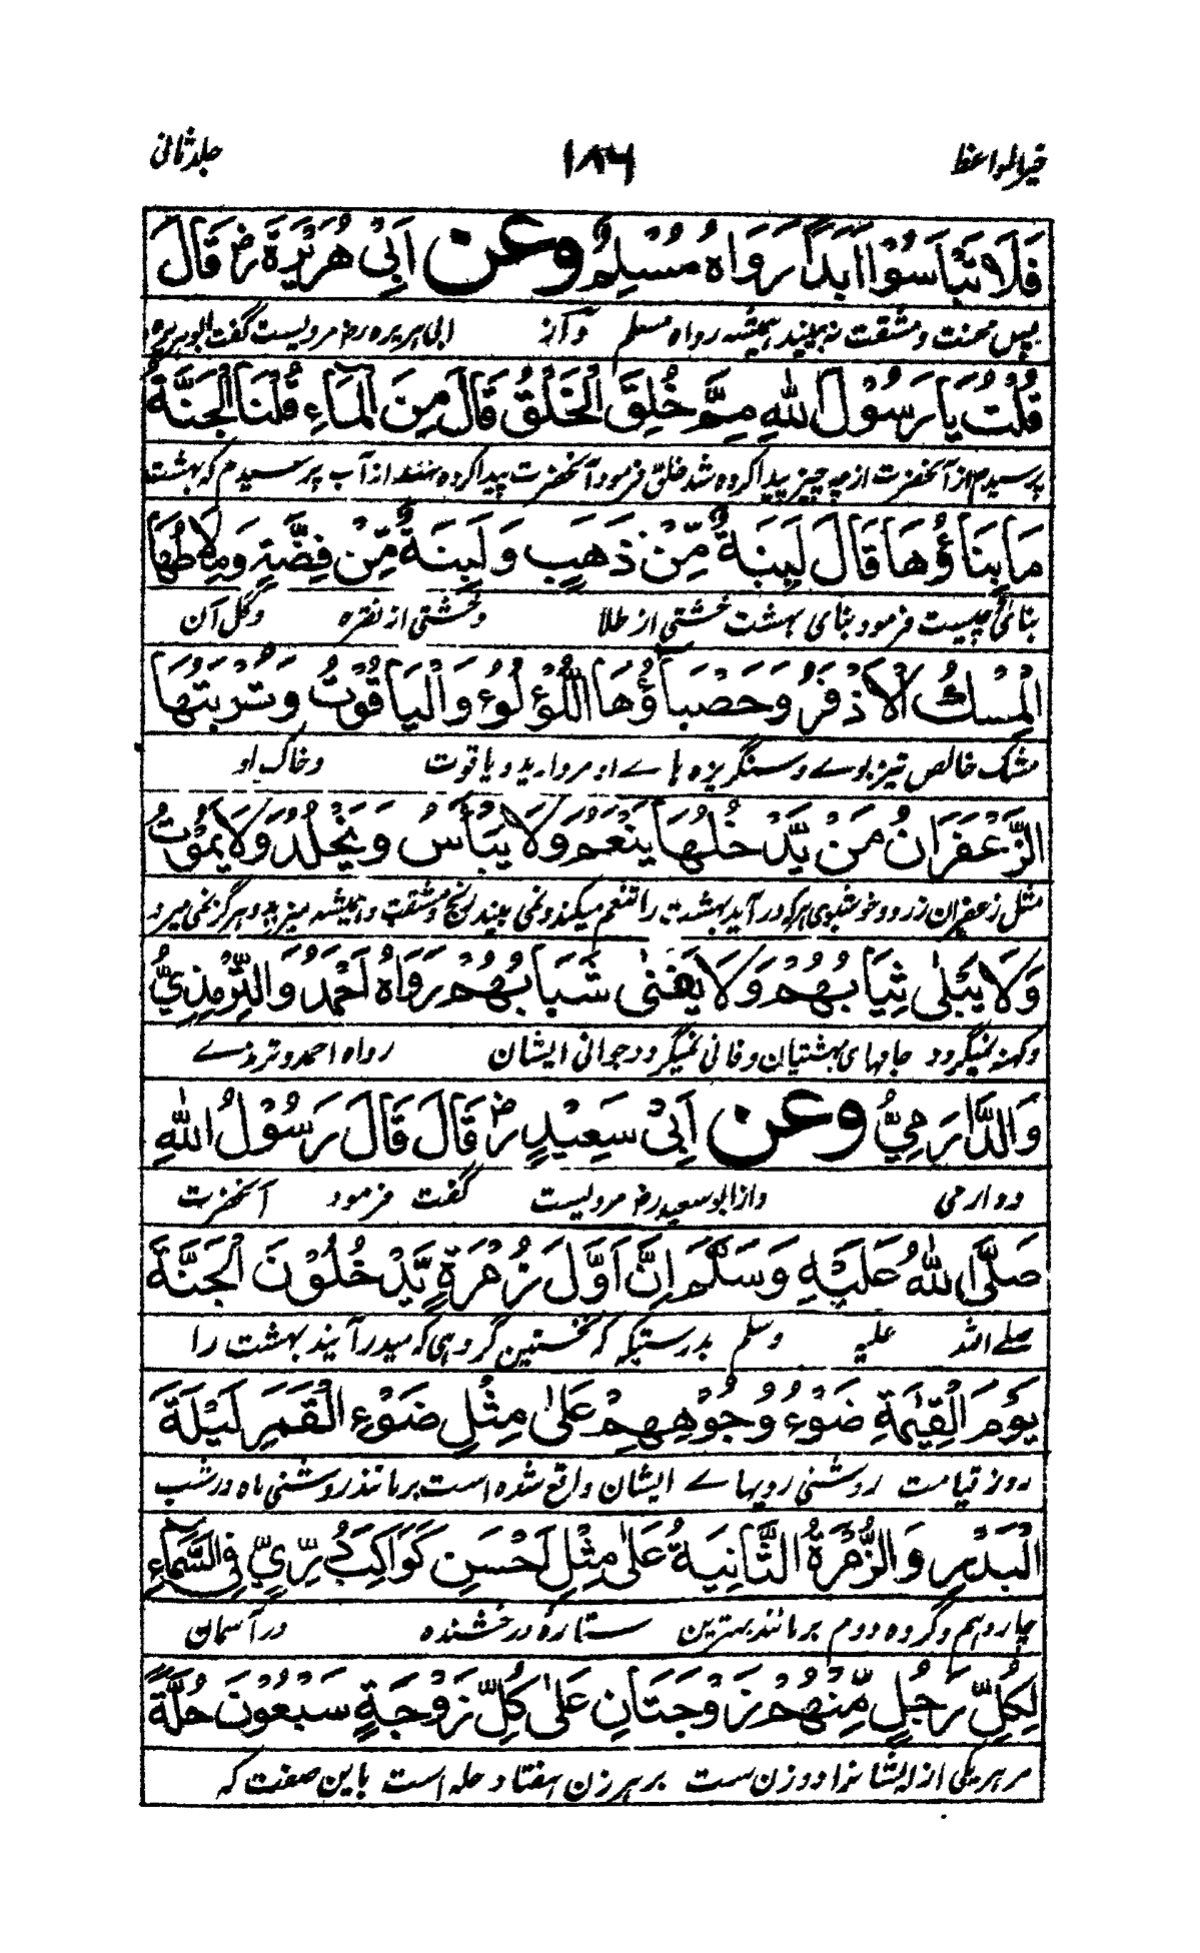 خیر المواعظ ۱۸۶ جلد ثانی
فَلَا تَبْأَسُوْا اَبَدًا رَوَاهُ مُسْلِمٌ وعن اَبِیْ هُرَيْرَةَ رض قَالَ
پس محنت و مشقت نہ بینید ہمیشہ رواہ مسلم و آنہ ابی ہریرہ رض مرویست گفت ابو ہریرہ
قُلْتُ يَا رَسُوْلَ اللهِ مِمَّ خُلِقَ الْخَلْقُ قَالَ مِنَ الْمَاءِ قُلْنَا الْجَنَّةُ
پرسیدم از آنحضرت از چہ چیز پیدا کردہ شد خلق فرمود آنحضرت پیدا کردہ شد از آب پرسیدم کہ بہشت
مَا بِنَاؤُهَا قَالَ لَبِنَةٌ مِّنْ ذَهَبٍ وَلَبِنَةٌ مِّنْ فِضَّةٍ وَمِلَاطُهَا
بنائی چیست فرمود بنای بہشت خشتی از طلا و خشتی از نقرہ و گل آن
الْمِسْكُ الْاَذْفَرُ وَحَصْبَاؤُهَا اللُّؤْلُؤُ وَالْيَاقُوْتُ وَتُرْبَتُهَا
مشک خالص تیز بوے و سنگریزہ ہاے او مروارید و یاقوت و خاک او
الزَّعْفَرَانُ مَنْ يَّدْخُلُهَا يَنْعَمُ وَلَا يَبْأَسُ وَيَخْلُدُ وَلَا يَمُوْتُ
مثل زعفران زرد و خوشبوی ہر کہ در آید بہشت را تنعم میکند و نمی بیند رنج و مشقت و ہمیشہ میزید و ہرگز نمی میرد
وَلَا يَبْلٰى ثِيَابُهُمْ وَلَا يَفْنٰى شَبَابُهُمْ رَوَاهُ اَحْمَدُ وَالتِّرْمِذِيُّ
و کہنہ نمیگردد جامہای بہشتیان و فانی نمیگردد جوانی ایشان رواہ احمد و ترمذے
وَالدَّارَمِيُّ وعن اَبِیْ سَعِيْدٍ رض قَالَ قَالَ رَسُوْلُ اللهِ
و دارمی و از ابو سعید رض مرویست گفت فرمود آنحضرت
صَلَّى اللهُ عَلَيْهِ وَسَلَّمَ اِنَّ اَوَّلَ زُمْرَةٍ يَّدْخُلُوْنَ الْجَنَّةَ
صلے اللہ علیہ وسلم بدرستیکہ کہ نخستین گروہی کہ میدر آیند بہشت را
يَوْمَ الْقِيٰمَةِ ضَوْءُ وُجُوْهِهِمْ عَلٰى مِثْلِ ضَوْءِ الْقَمَرِ لَيْلَةَ
روز قیامت روشنی رویہاے ایشان واقع شدہ است بر مانند روشنی ماہ در شب
الْبَدْرِ وَالزُّمْرَةُ الثَّانِيَةُ عَلٰى مِثْلِ اَحْسَنِ كَوَاكِبَ دُرِّيٍّ فِي السَّمَاءِ
چاردہم و گروہ دوم بر مانند بہترین ستارۂ درخشندہ در آسمان
لِكُلِّ رَجُلٍ مِّنْهُمْ زَوْجَتَانِ عَلٰى كُلِّ زَوْجَةٍ سَبْعُوْنَ حُلَّةً
مر ہر یکی از ایشانرا دو زن ست بر ہر زن ہفتاد حلہ است باین صفت کہ